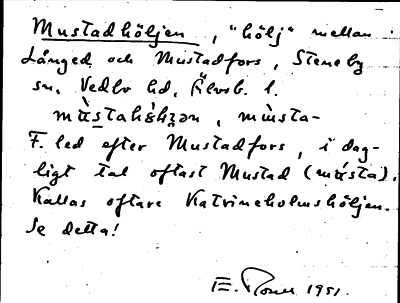 Mustadhöljen, "hölj" mellan
Långed och Mustadfors, Steneby
sn, Vedbo hd, Älvsb. l.
F. led efter Mustadfors, i dag-
ligt tal oftast Mustad
Kallas oftare Katrineholmshöljen.
Se detta!
1951.